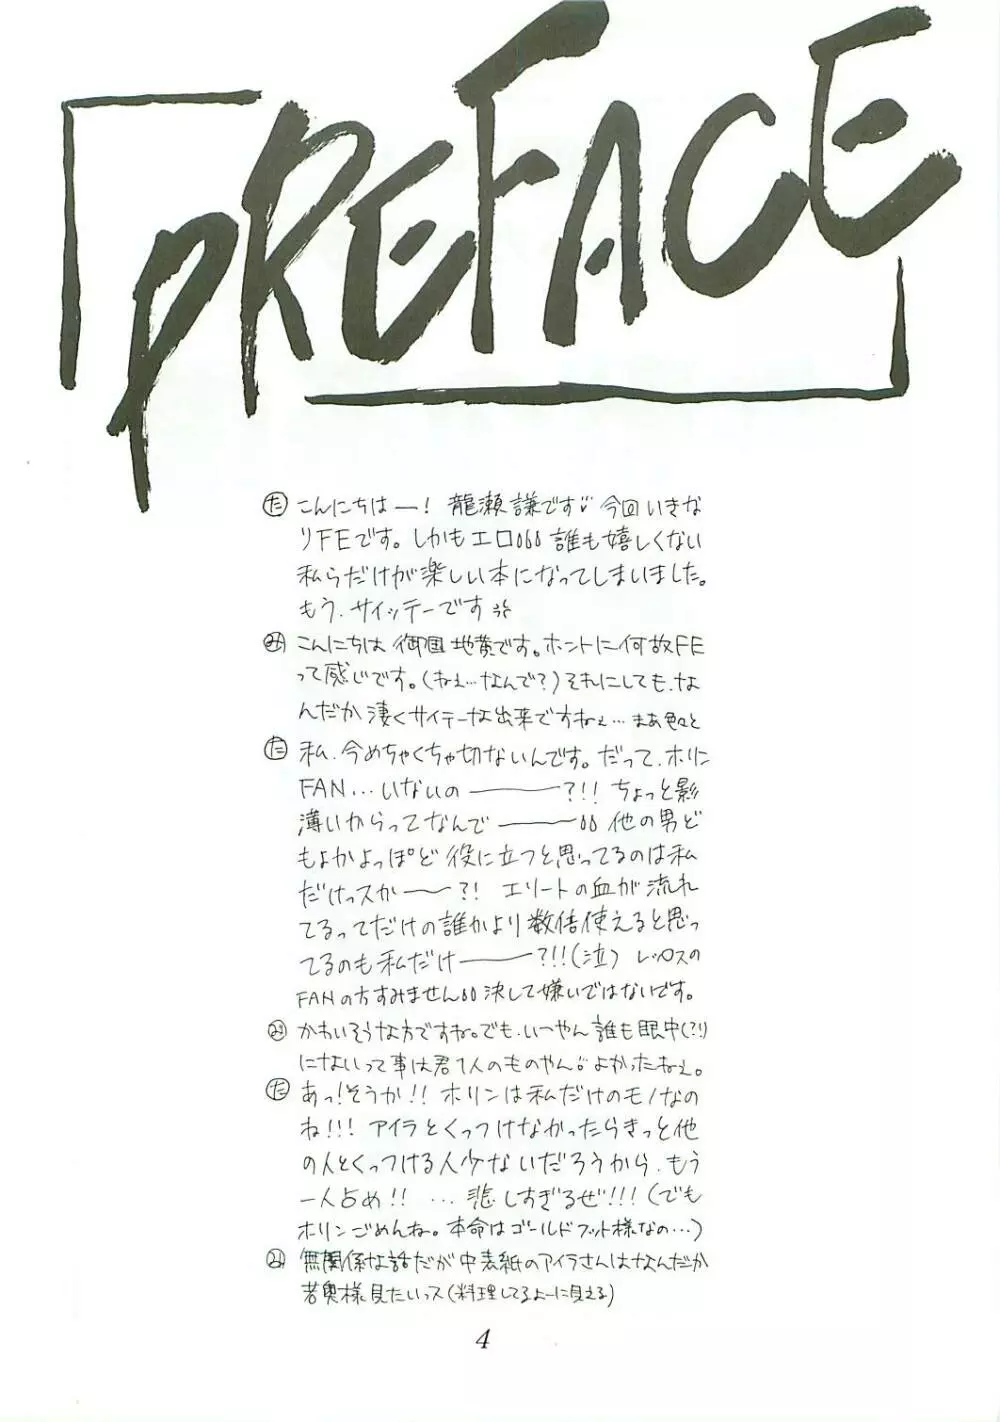 PREFACE
た こんにちはー! 龍瀬謙です 今回いきな
りFEです。しかもエロ 誰も嬉しくない
私らだけが楽しい本になってしまいました。
もう、サイッテーです
み こんにちは 御国地黄です。ホントに何故FE
って感じです。(ねぇ…なんで?)それにしても、な
んだか凄くサイテーな出来ですねぇ…まあ色々と
た 私、今めちゃくちゃ切ないんです。だって、ホリン
FAN…いないの———?!! ちょっと影
薄いからってなんで——— 他の男ど
もよかよっぽど役に立つと思ってるのは私
だけっスか——?! エリートの血が流れ
てるってだけの誰かより数倍使えると思っ
てるのも私だけ———?!!(泣) レックスの
FANの方すみません 決して嫌いではないです。
み かわいそうな方ですね。でも、いーやん誰も眼中(?!)
にないって事は君1人のものやん よかったねぇ。
た あっ!そうか!! ホリンは私だけのモノなの
ね!!! アイラとくっつけなかったらきっと他
の人とくっつける人少ないだろうから、もう
一人占め!! …悲しすぎるぜ!!!(でも
ホリンごめんね。本命はゴールドフット様なの…)
み 無関係な話だが中表紙のアイラさんはなんだか
若奥様見たいっス(料理してるよーに見える)
4